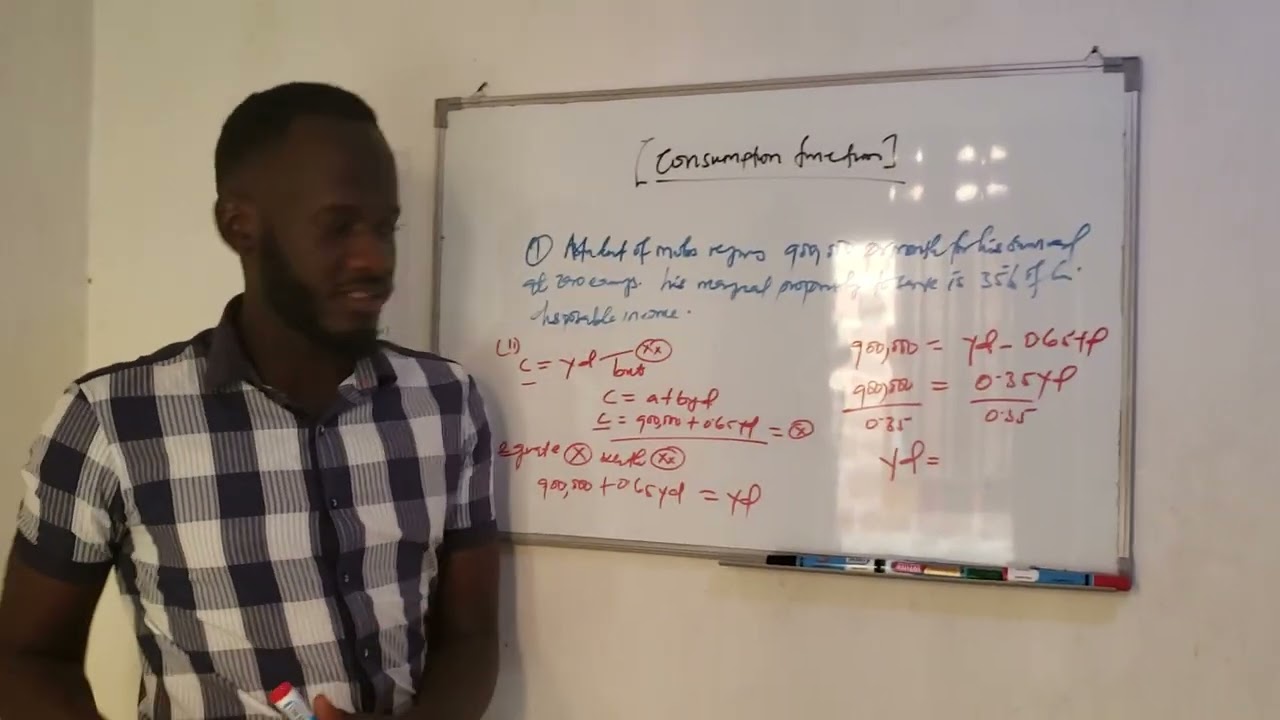 [Consumption function]
① A student of mubs requires 900,000 per month for his survival
at zero his marginal propensity to save is 35% of
disposable income.
(ii)
C = yd (xx)
but
C = a + byd
C = 900,000 + 0.65yd = (x)
equate (x) with (xx)
900,000 + 0.65yd = yd
900,000 = yd - 0.65yd
900,000 = 0.35yd
0.35 0.35
yd =